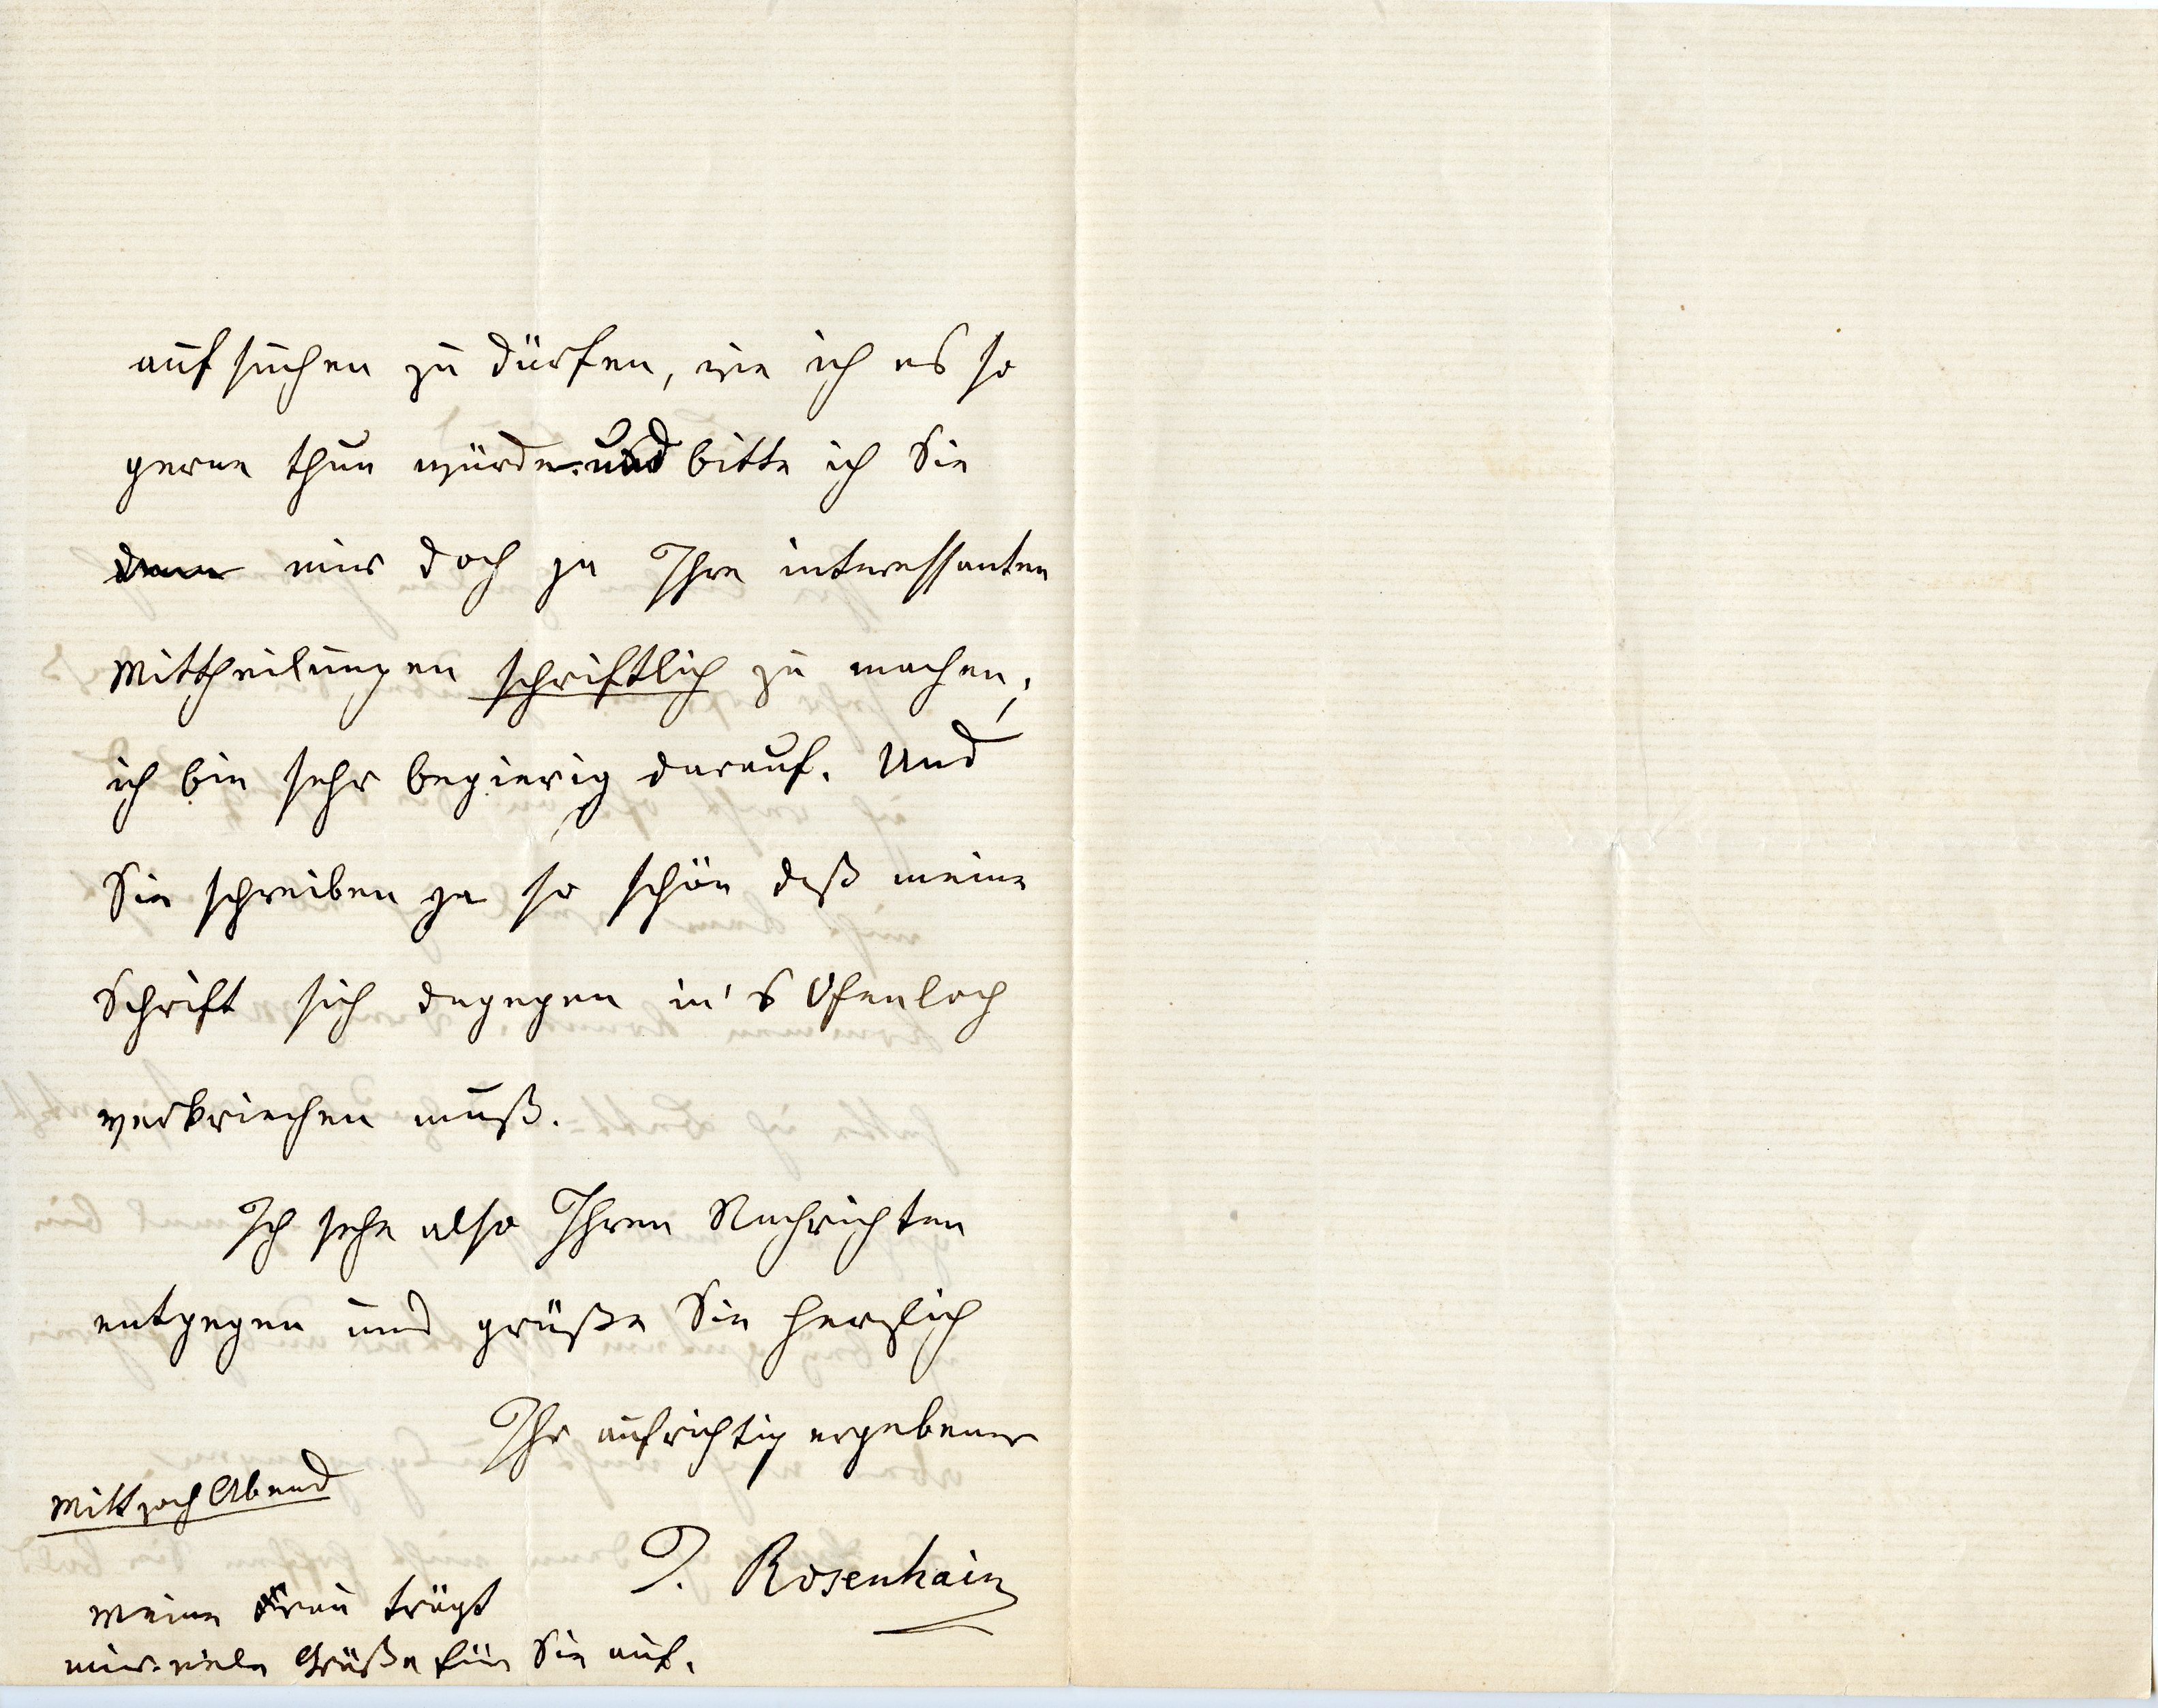 aufsuchen zu dürfen, wie ich es so
gerne thun würde und bitte ich Sie
mir doch ja Ihre interessanten
Mittheilungen schriftlich zu machen;
ich bin sehr begierig darauf. Und
Sie schreiben ja so schön daß meine
Schrift sich dagegen in's Ofenloch
verkriechen muß.
Ich sehe also Ihren Nachrichten
entgegen und grüße Sie herzlich
Ihr aufrichtig ergebener
Mittwoch Abend
J. Rosenhain
Meine Frau trägt
mir viele Grüße für Sie auf.